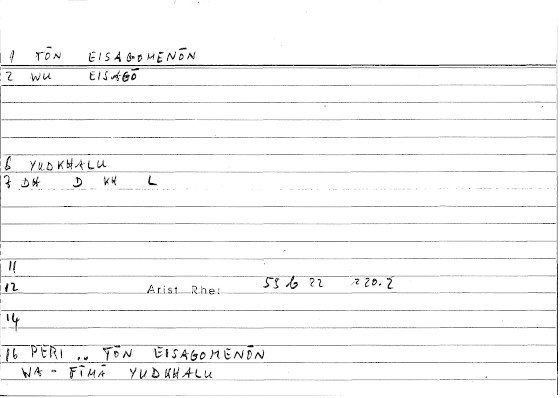 1 TŌN EISAGOMENŌN
2 WU EISAGŌ
6 YUDKHALU
7 DH D KH L
11
12 Arist Rhet 53 b 22 220.2
14
16 PERI .. TŌN EISAGOMENŌN
WA - FĪMĀ YUDKHALU